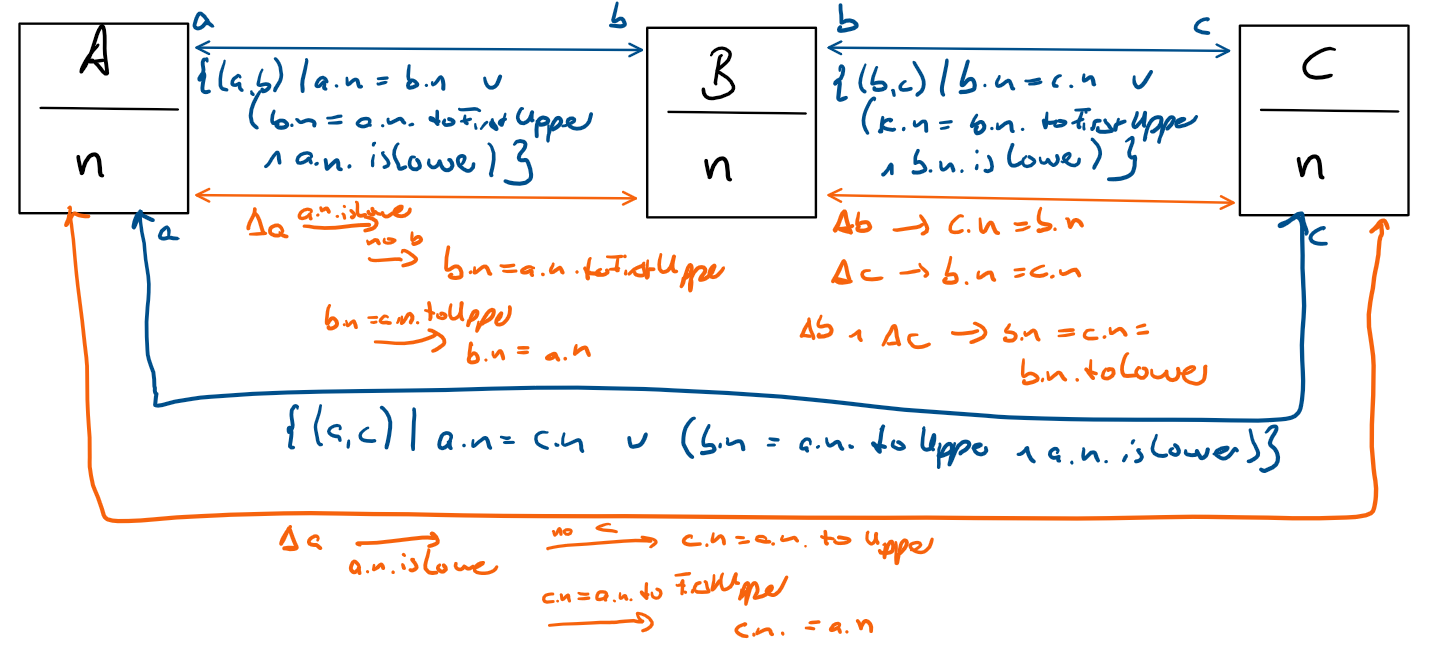 A
n
a
b
{(a,b) | a.n = b.n ∨
(b.n = a.n. toFirstUpper
∧ a.n. isLower)}
B
n
b
c
{(b,c) | b.n = c.n ∨
(c.n = b.n. toFirstUpper
∧ b.n. isLower)}
C
n
Δa a.n.isLowe →
no b → b.n = a.n.toFirstUpper
b.n = c.n.toUpper →
b.n = a.n
Δb → c.n = b.n
Δc → b.n = c.n
Δb ∧ Δc → b.n = c.n =
b.n.toLower
a
c
{(a,c) | a.n = c.n ∨ (b.n = a.n. toUppe ∧ a.n. isLower)}
Δa → a.n.isLowe
no c → c.n = a.n. to Upper
c.n = a.n. to FirstUpper
→ c.n. = a.n